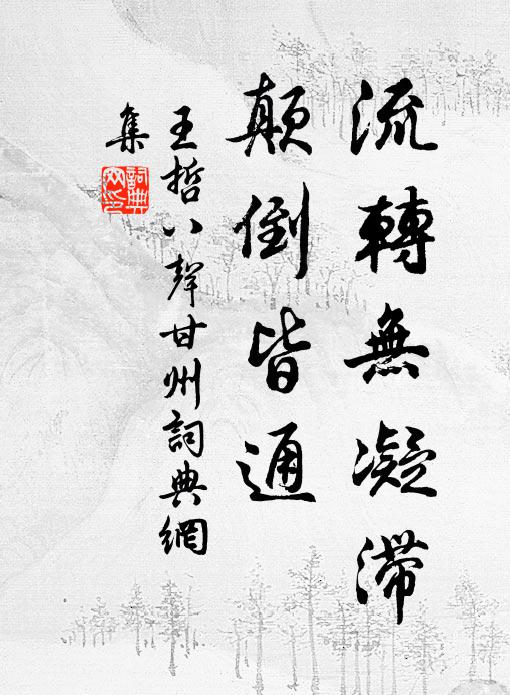 流轉無凝滯
顛倒皆通
王哲八聲甘州詞典網
集
詞典網